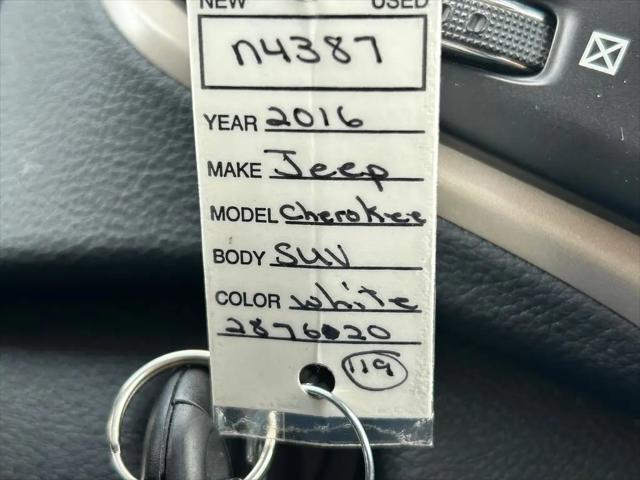 NEW USED
n4387
YEAR 2016
MAKE Jeep
MODEL Cherokee
BODY SUV
COLOR white
2876020
119